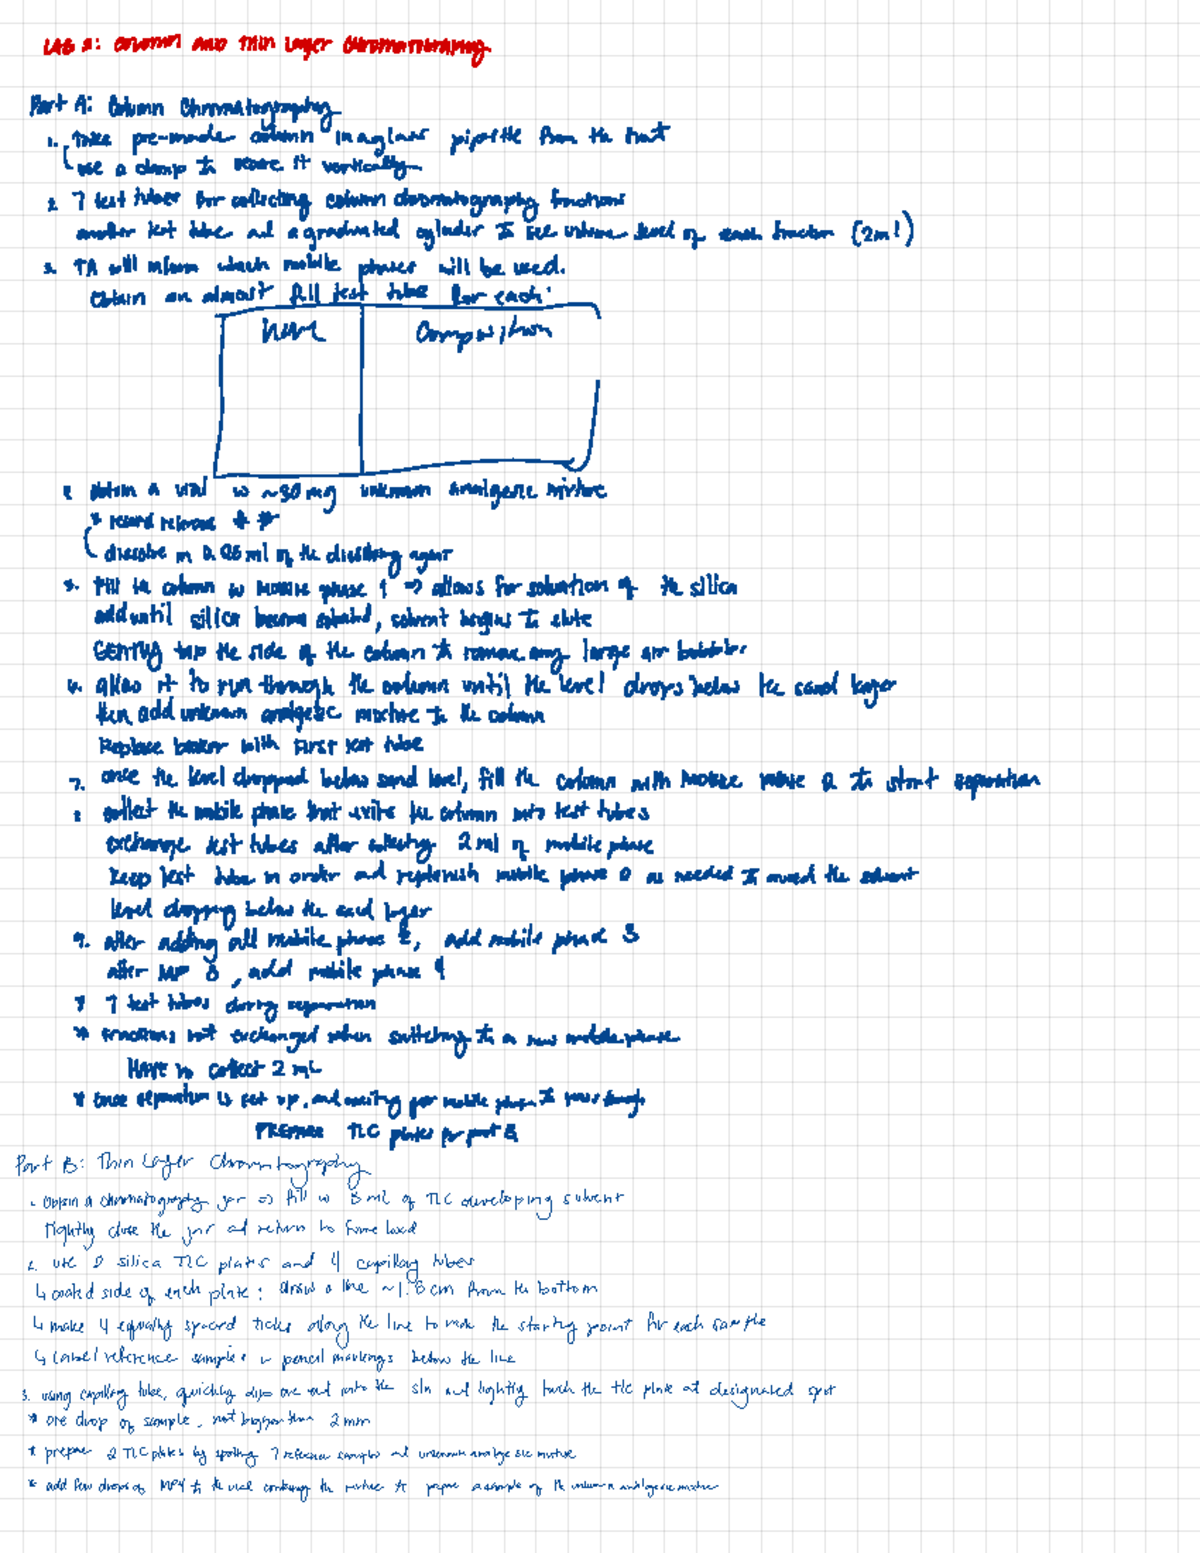 LAB 2: Column and Thin Layer Chromatography
Part A: Column Chromatography
1. Take pre-made column in a glass pipette from the front
use a clamp to secure it vertically
2. 7 test tubes for collecting column chromatography fractions
another test tube and a graduated cylinder to see volume level of each fraction (2ml)
3. TA will inform which mobile phases will be used.
Obtain an almost full test tube for each:
Name Composition
obtain a vial w ~50 mg unknown analgesic mixture
* record
dissolve in 0.25 ml of the dissolving agent
5. Fill the column w mobile phase 1 => allows for solvation of the silica
add until silica becomes solvated, solvent begins to elute
GENTLY tap the side of the column to remove any large air bubbles
6. allow it to run through the column until the level drops below the sand layer
then add unknown analgesic mixture to the column
Replace beaker with first test tube
7. once the level dropped below sand level, fill the column with mobile phase 2 to start separation
8 collect the mobile phase that exits the column into test tubes
exchange test tubes after collecting 2 ml of mobile phase
keep test tubes in order and replenish mobile phase as needed to avoid the solvent
level dropping below the sand layer
9. after adding all mobile phase 2, add mobile phase 3
after MP 3, add mobile phase 4
* 7 test tubes during separation
* fractions not exchanged when switching to a new mobile phase
HAVE to collect 2 mL
* once separation is set up, and waiting for mobile phase to pass through
PREPARE TLC plates for part B
Part B: Thin Layer Chromatography
1. obtain a chromatography jar => fill w 5 ml of TLC developing solvent
tightly close the jar and return to fume hood
2. use 2 silica TLC plates and 4 capillary tubes
↳ coated side of each plate: draw a line ~1.5 cm from the bottom
↳ make 4 equally spaced ticks along the line to mark the starting point for each sample
↳ label reference samples w pencil markings below the line
3. using capillary tube, quickly dip one end into the sln and lightly touch the tlc plate at designated spot
* one drop of sample, not bigger than 2 mm
* prepare 2 TLC plates by spotting 7 reference samples and unknown analgesic mixture
* add few drops of MP4 to the vial containing the mixture to prepare a sample of the unknown analgesic mixture